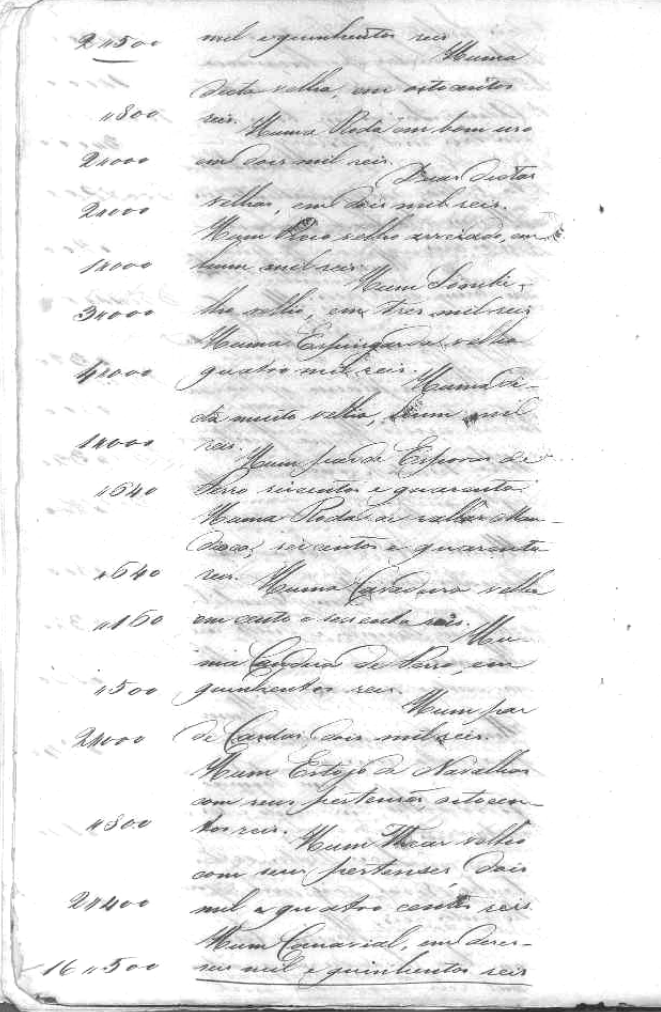 2"500 mil e quinhentos reis
Huma
dita velha, em oitocentos
"800 reis.
Huma Roda em bom uso
2"000 em dois mil reis.
Duas dictas
2"000 velhas, em dois mil reis.
Hum velho arreiado, em
1"000 hum mil reis.
Hum
3"000 velho, em tres mil reis
Huma Espingarda velha
4"000 quatro mil reis.
Huma di-
ta muito velha, hum mil
1"000 reis.
Hum par de Esporas de
"640 ferro seiscentos e quarenta
Huma Roda de ralhar Man-
dioca, seiscentos e quarenta
"640 reis.
Huma Cavadura velha
"160 em cento e sessenta reis.
Hu-
ma de Ferro, em
"500 quinhentos reis.
Hum par
2"000 de Cardas, dois mil reis.
Hum Estojo de Navalhas
com seus pertenses, oitocen-
"800 tos reis.
Hum Thear velho
com seus pertenses, dois
2"400 mil e quatro centos reis
Hum Canavial, em deses-
16"500 seis mil e quinhentos reis